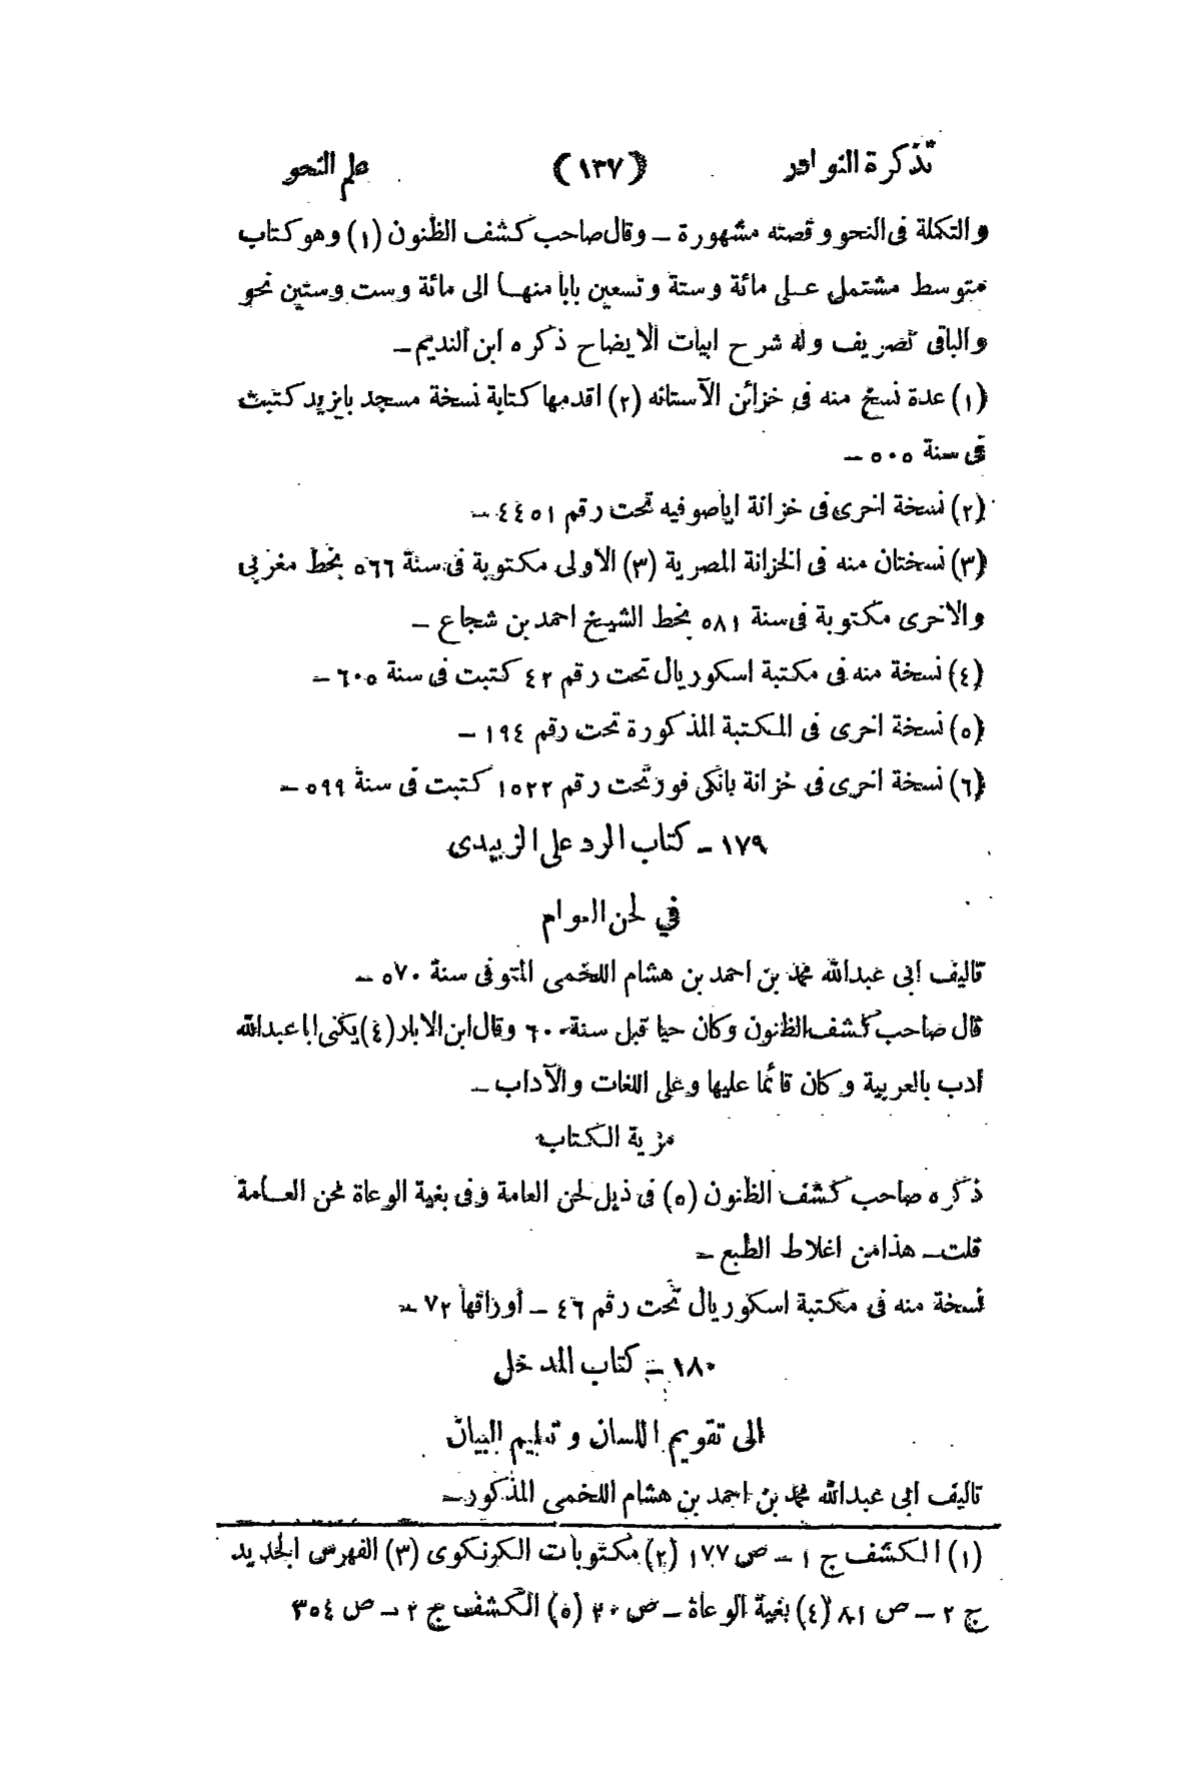 تذكرة النوادر (١٣٧) علم النحو
والتكملة فى النحو وقصته مشهورة – وقال صاحب كشف الظنون (١) وهو كتاب
متوسط مشتمل على مائة وستة وتسعين بابا منها الى مائة وست وستين نحو
والباقى تصريف وله شرح ابيات الايضاح ذكره ابن النديم –
(١) عدة نسخ منه فى خزائن الآستانه (٢) اقدمها كتابة نسخة مسجد بايزيد كتبت
فى سنة ٥٠٥ –
(٢) نسخة اخرى فى خزانة اياصوفيه تحت رقم ٤٤٥١ –
(٣) نسختان منه فى الخزانة المصرية (٣) الاولى مكتوبة فى سنة ٥٦٦ بخط مغربى
والاخرى مكتوبة فى سنة ٥٨١ بخط الشيخ احمد بن شجاع –
(٤) نسخة منه فى مكتبة اسكوريال تحت رقم ٤٢ كتبت فى سنة ٦٠٥ –
(٥) نسخة اخرى فى المكتبة المذكورة تحت رقم ١٩٤ –
(٦) نسخة اخرى فى خزانة بانكى فور تحت رقم ١٥٢٢ كتبت فى سنة ٥٩٩ –
١٧٩ – كتاب الرد على الزبيدى
في لحن العوام
تاليف ابى عبدالله محمد بن احمد بن هشام اللخمى المتوفى سنة ٥٧٠ –
قال صاحب كشف الظنون وكان حيا قبل سنة ٦٠٠ وقال ابن الابار (٤) يكنى ابا عبدالله
ادب بالعربية وكان قائما عليها وعلى اللغات والآداب –
مزية الكتاب
ذكره صاحب كشف الظنون (٥) فى ذيل لحن العامة وفى بغية الوعاة نحن العامة
قلت – هذا من اغلاط الطبع –
نسخة منه فى مكتبة اسكوريال تحت رقم ٤٦ – أوراقها ٧٢ –
١٨٠ – كتاب المدخل
الى تقويم اللسان وتعليم البيان
تاليف ابى عبدالله محمد بن احمد بن هشام اللخمى المذكور –
(١) الكشف ج ١ – ص ١٧٧ (٢) مكتوبات الكرنكوى (٣) الفهرس الجديد
ج ٢ – ص ٨١ (٤) بغية الوعاة – ص ٢٠ (٥) الكشف ج ٢ – ص ٣٥٤